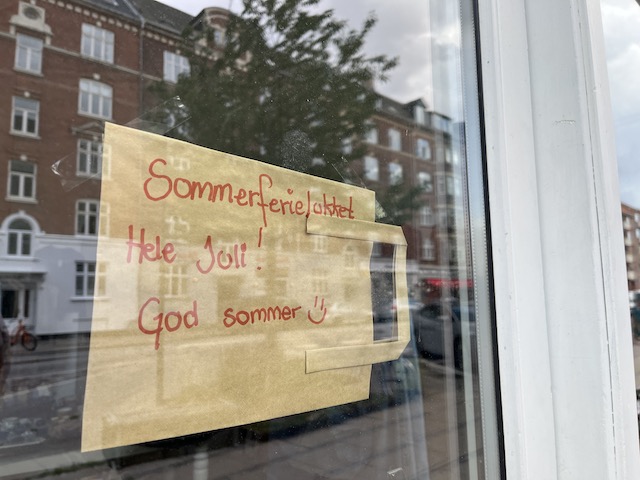 Sommerferielukket
Hele Juli!
God sommer :)